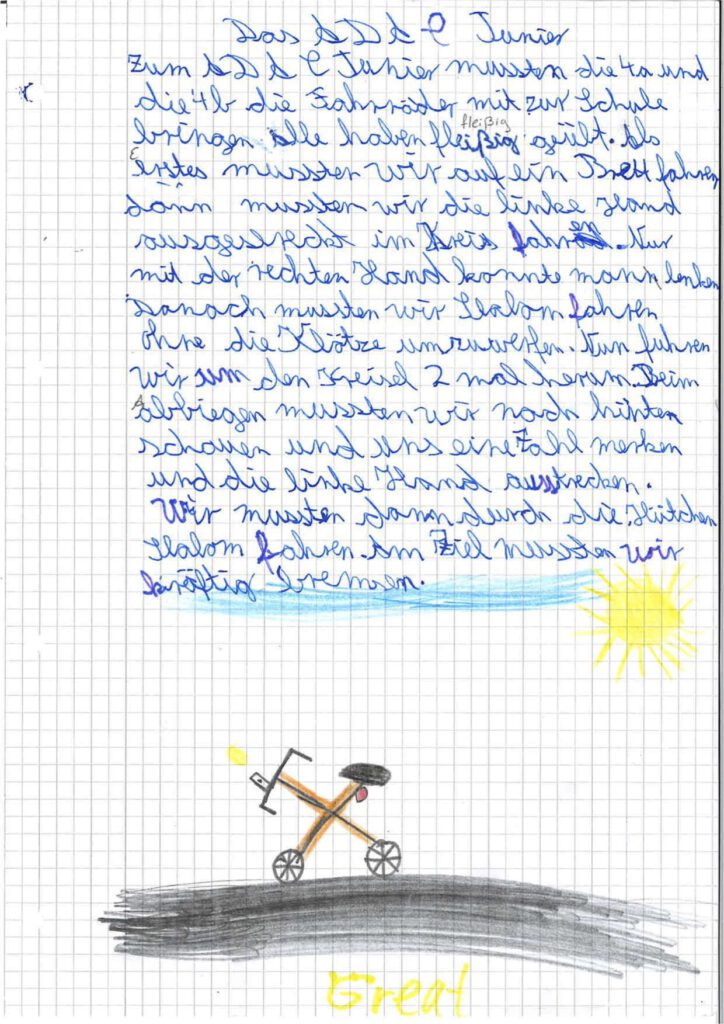 Das ADAC Junier
Zum ADAC Junier mussten die 4a und
die 4b die Fahrräder mit zur Schule
fleißig
bringen Alle haben fleißig geübt. Als
erstes mussten wir auf ein Brett fahren
dann mussten wir die linke Hand
ausgestreckt im Kreis fahren. Nur
mit der rechten Hand konnte mann lenken
Danach mussten wir Slalom fahren
ohne die Klötze umzuwerfen. Nun fuhren
wir um den Kreisel 2 mal herum. Beim
Abbiegen mussten wir nach hinten
schauen und uns eine Zahl merken
und die linke Hand ausstrecken.
Wir mussten dann durch die Hütchen
Slalom fahren. Am Ziel mussten wir
kräftig bremsen.
Great